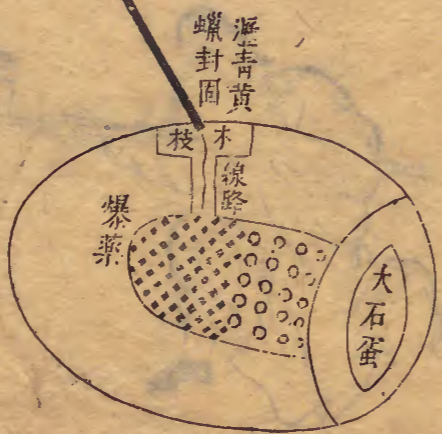 瀝青黄
蠟封固
木枝
線路
爆藥
大石蛋